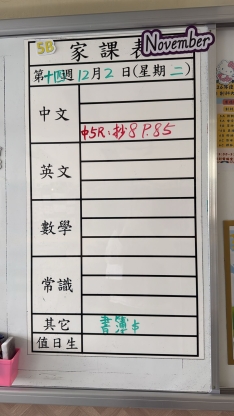 5B 家課表 November
第十四週 12月2日(星期二)
中文
中5R:抄8 P.85
英文
數學
常識
其它 書簿$
值日生